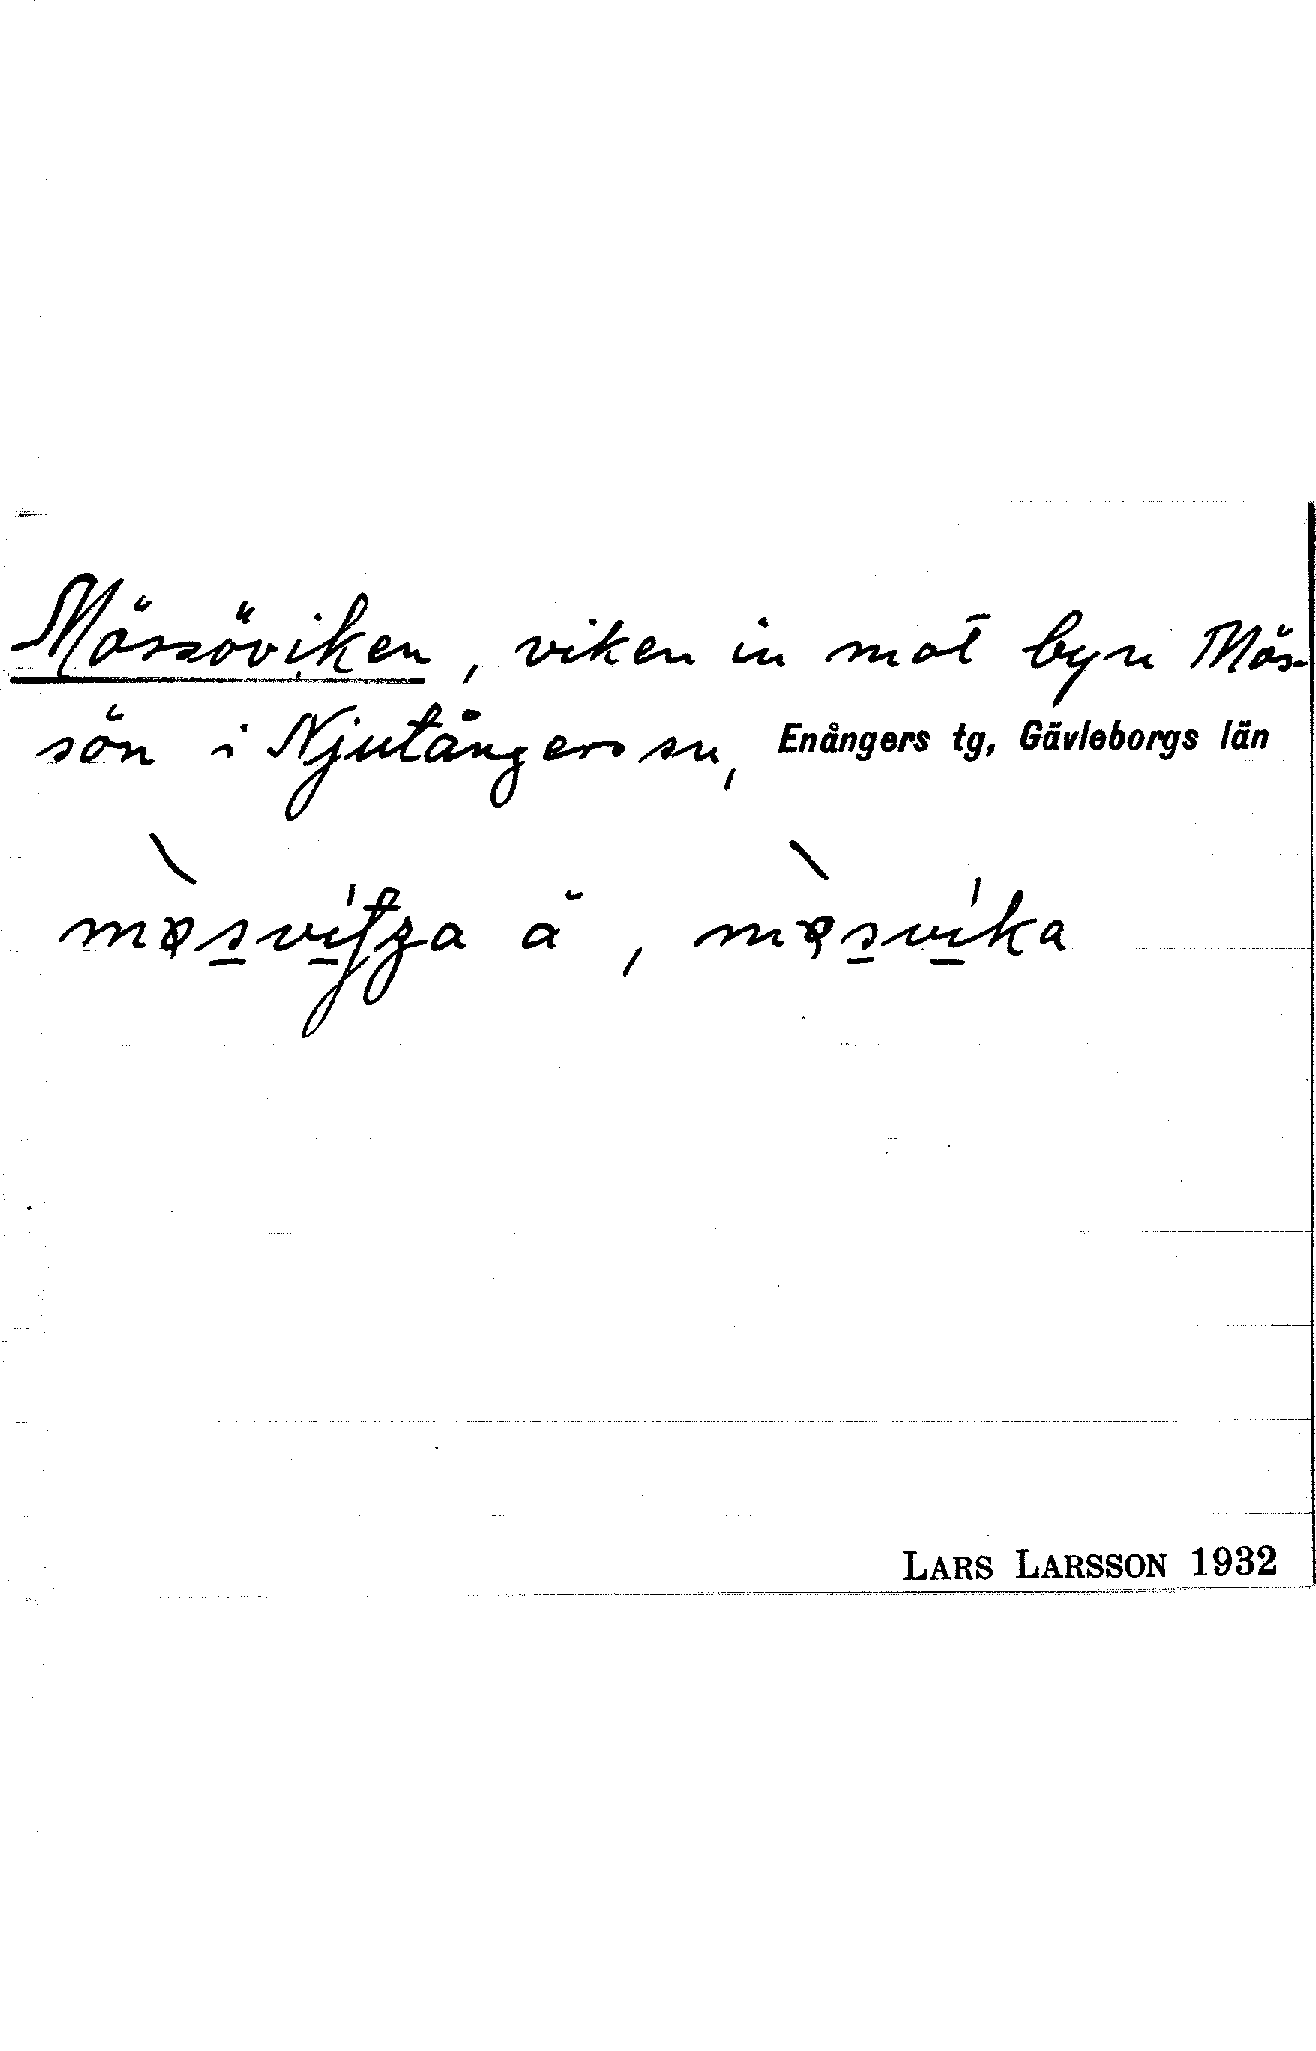 Mössöviken, viken in mot byn Mös-
sön i Njutångers sn, Enångers tg, Gävleborgs län
LARS LARSSON 1932